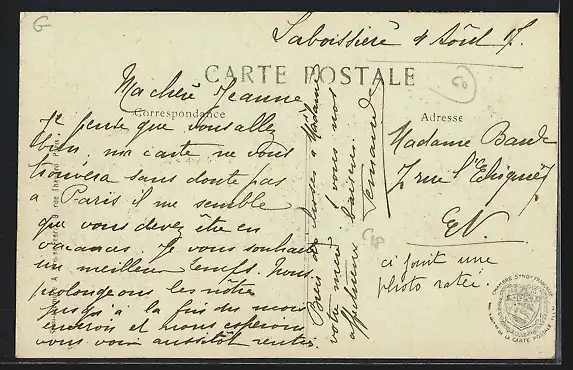 G
Laboissière 4 Août 17.
CARTE POSTALE
Ma chère Jeanne
Correspondance
Je pense que vous allez
bien, ma carte ne vous
trouvera sans doute pas
a Paris il me semble
que vous devez être en
vacances. Je vous souhaite
un meilleur temps. Nous
prolongeons les nôtre
jusqu'à la fin du mois
environ et nous espérons
vous voir aussitôt rentrés.
Bien des choses à Madame
votre mère à vous nos
affectueux baisers.
Adresse
Madame
7 rue l'Echiquier
EV.
ci joint une
photo ratée.
CHAMBRE SYNDICALE
DE LA CARTE POSTALE